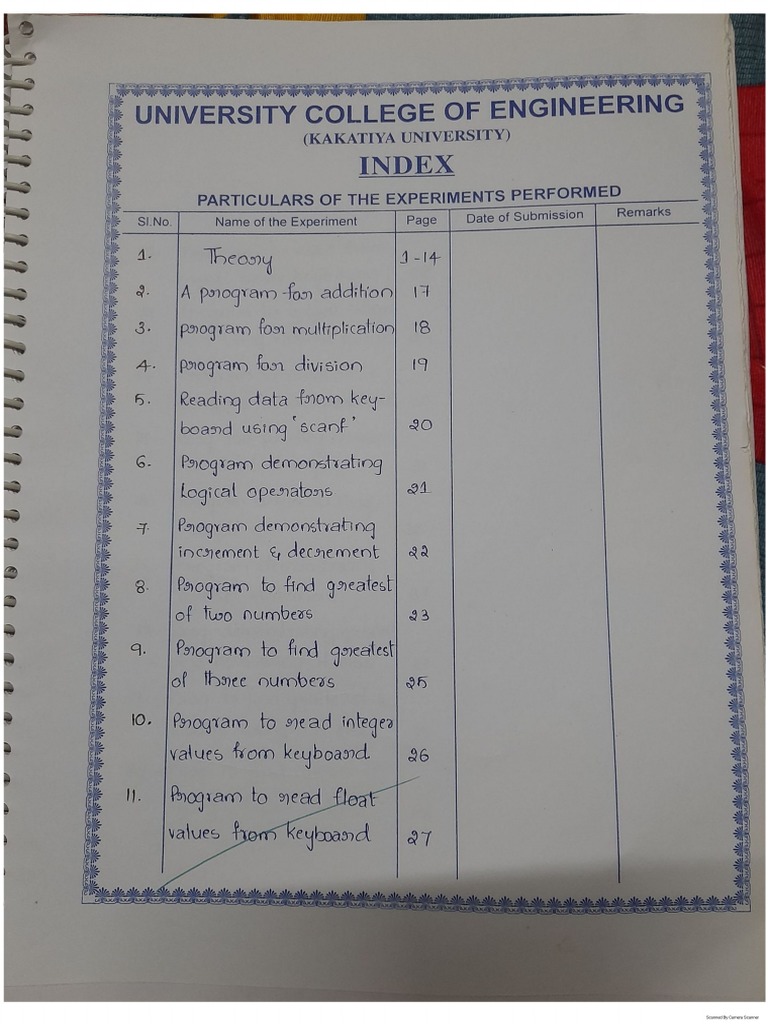 UNIVERSITY COLLEGE OF ENGINEERING
(KAKATIYA UNIVERSITY)
INDEX
PARTICULARS OF THE EXPERIMENTS PERFORMED
Sl.No. Name of the Experiment Page Date of Submission Remarks
1. Theory 1-14
2. A program for addition 17
3. program for multiplication 18
4. program for division 19
5. Reading data from key-
board using 'scanf' 20
6. Program demonstrating
Logical operators 21
7. Program demonstrating
increment & decrement 22
8. Program to find greatest
of two numbers 23
9. Program to find greatest
of three numbers 25
10. Program to read integer
values from keyboard 26
11. Program to read float
values from keyboard 27
Scanned By Camera Scanner